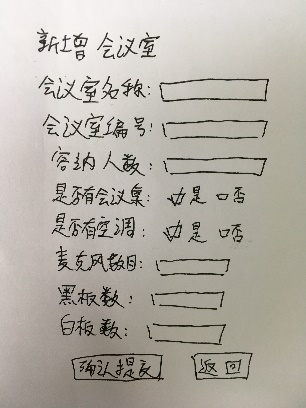 新增会议室
会议室名称:
会议室编号:
容纳人数:
是否有会议桌: 是 否
是否有空调: 是 否
麦克风数目:
黑板数:
白板数:
确认提交 返回